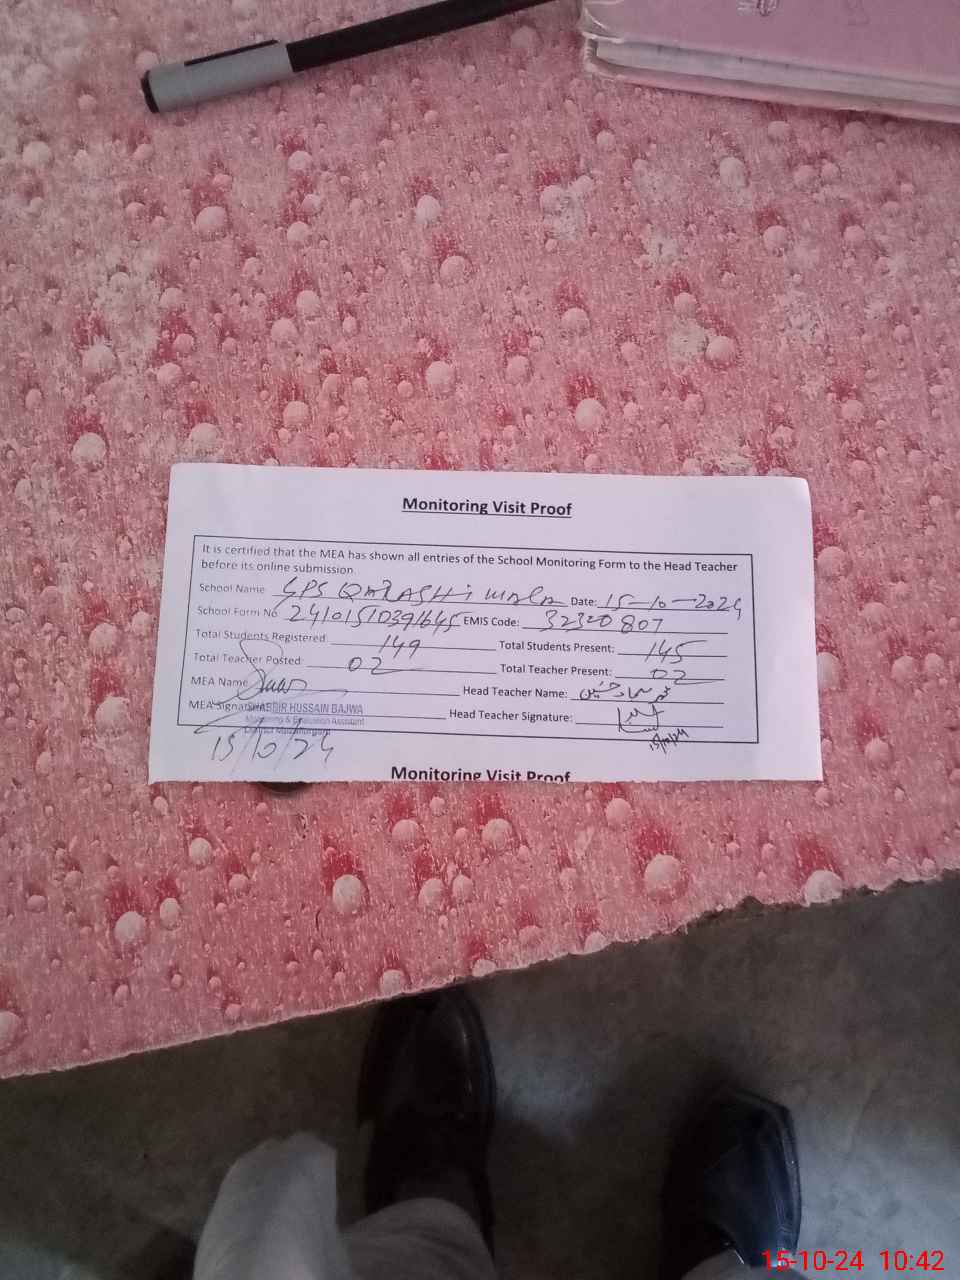 Monitoring Visit Proof
It is certified that the MEA has shown all entries of the School Monitoring Form to the Head Teacher
before its online submission.
School Name: GPS QURASHI WALA Date: 15-10-2024
School Form No: 24101510391645 EMIS Code: 32320807
Total Students Registered: 149 Total Students Present: 145
Total Teacher Posted: 02 Total Teacher Present: 02
MEA Name: Head Teacher Name:
MEA Signature: Head Teacher Signature:
SHABBIR HUSSAIN BAJWA
Monitoring & Evaluation Assistant
District Muzaffargarh
15/10/24
15/10/24
Monitoring Visit Proof
15-10-24 10:42